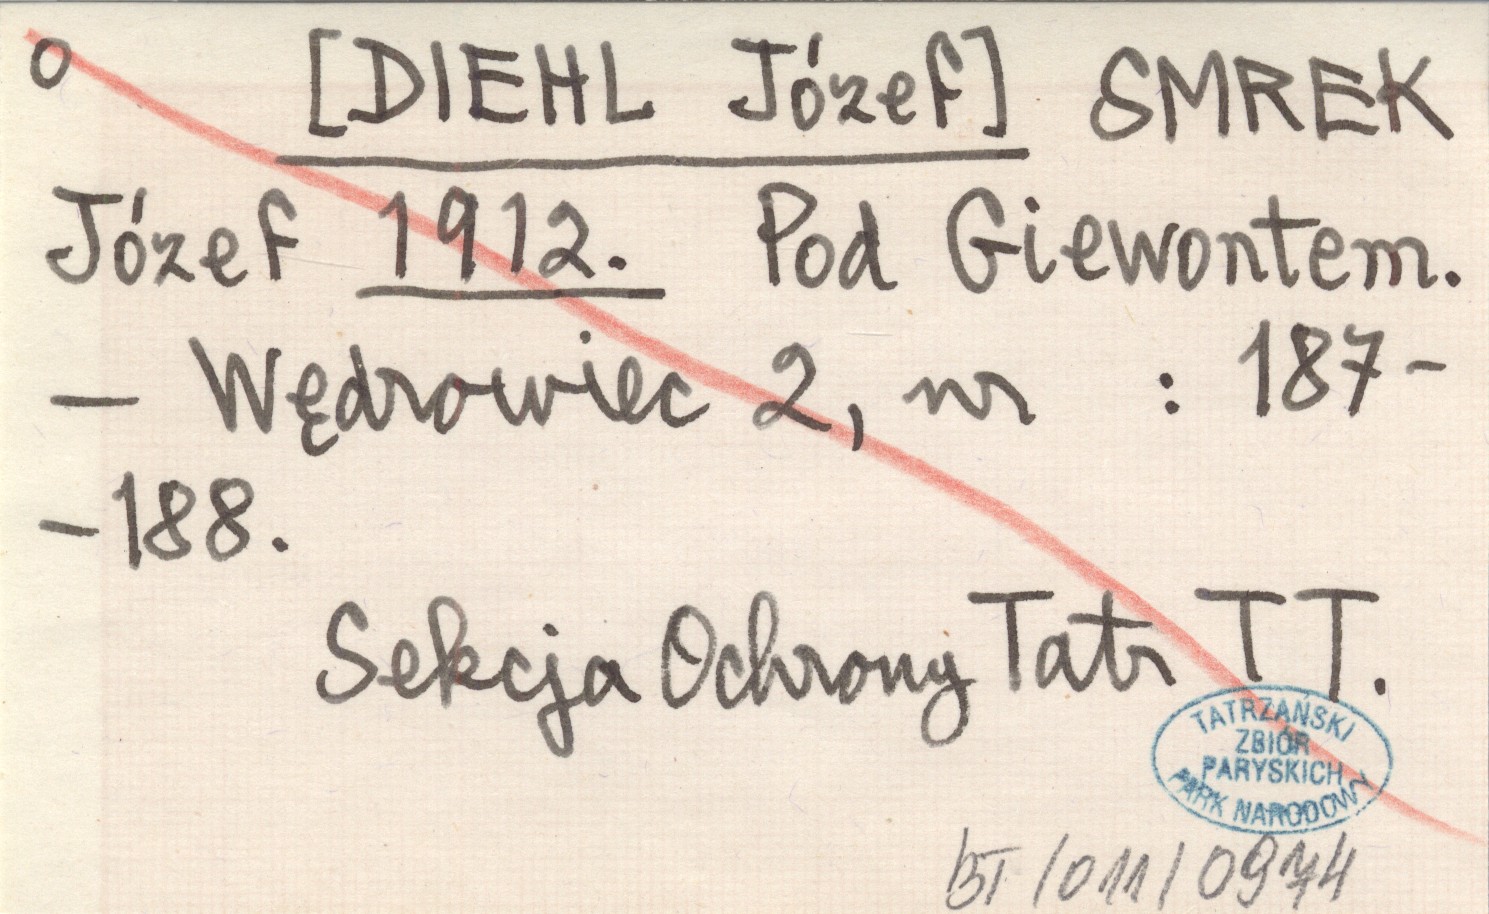 o [DIEHL Józef] SMREK
Józef 1912. Pod Giewontem.
— Wędrowiec 2, nr : 187-
-188.
Sekcja Ochrony Tatr TT.
TATRZAŃSKI
ZBIÓR
PARYSKICH
PARK NARODOWY
BT/011/0974